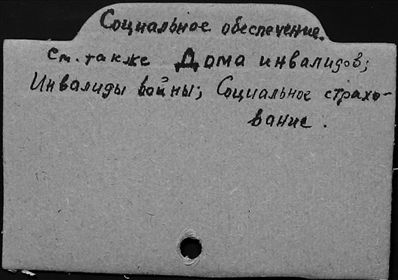 Социальное обеспечение.
См. также Дома инвалидов;
Инвалиды войны; Социальное страхо-
вание.